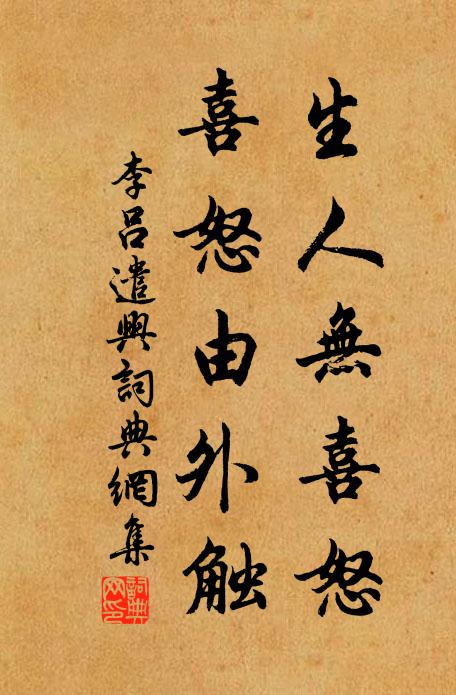 生人無喜怒
喜怒由外触
李吕遣興詞典網集
詞典网印